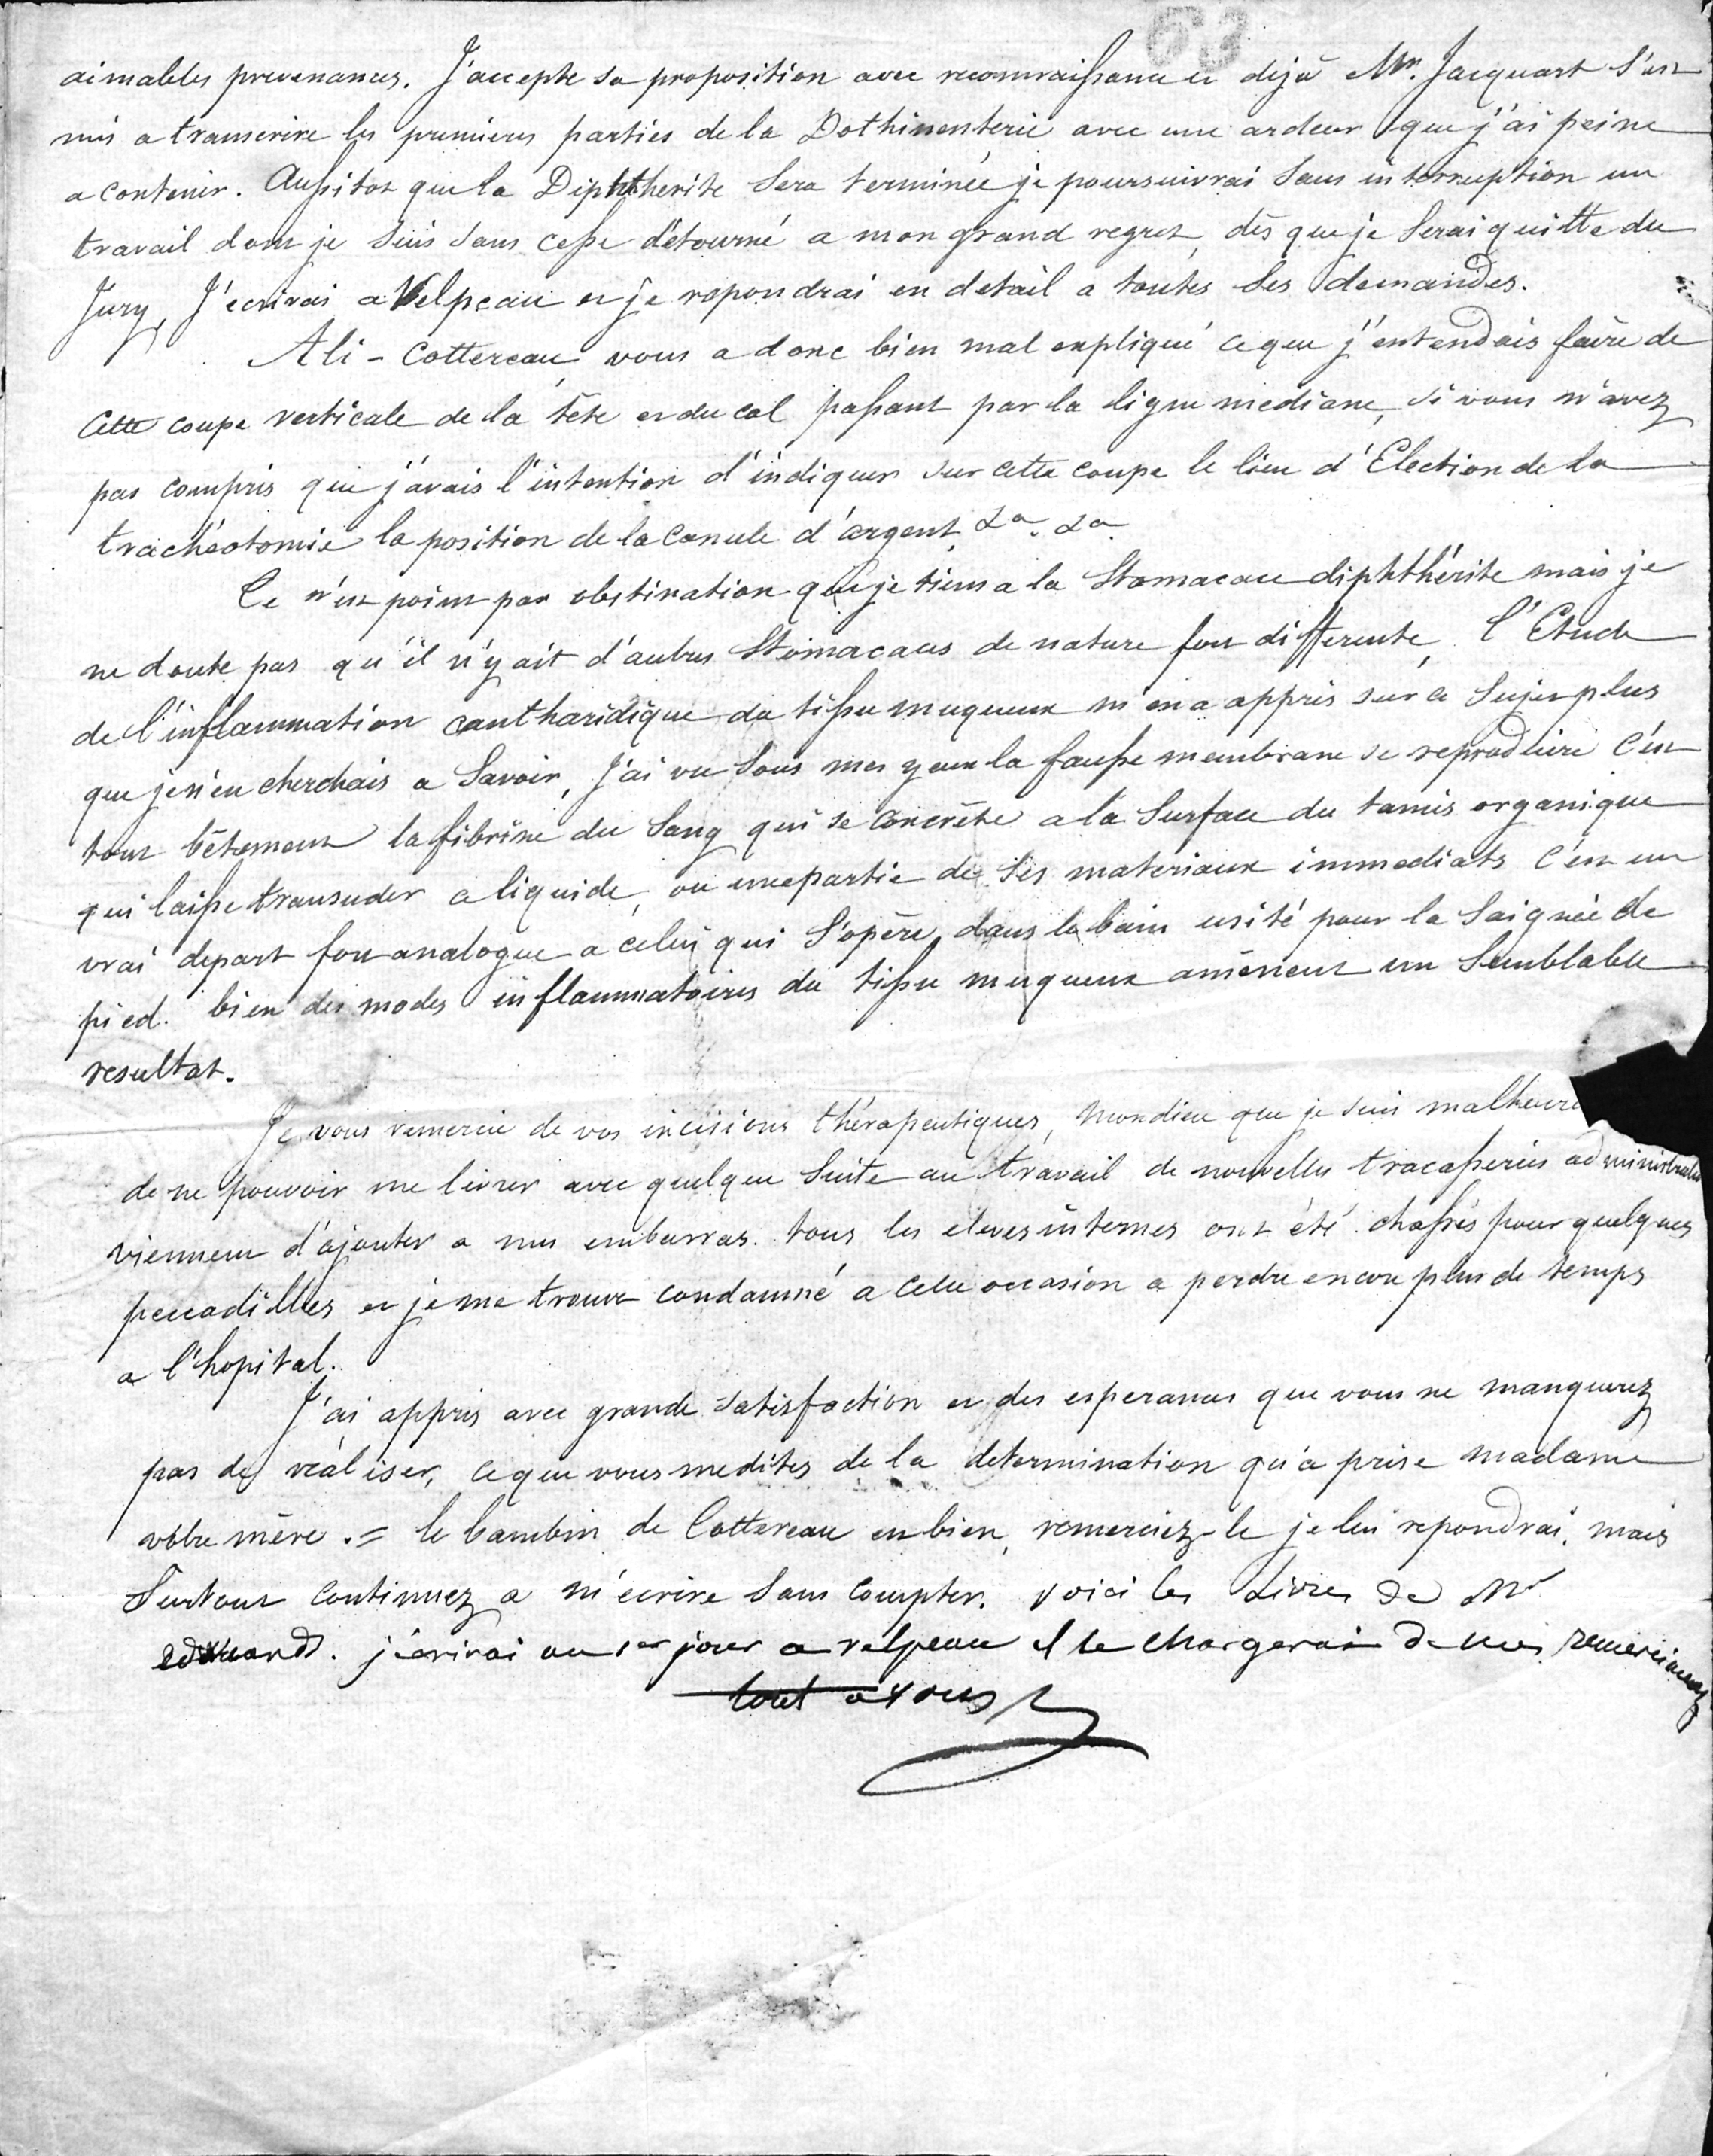 63
aimables prevenances. J'accepte sa proposition avec reconnaissance et dejà Mr. Jacquart s'est
mis a transcrire les premieres parties de la Dothinenterie avec une ardeur que j'ai peine
a contenir. Aussitot que la Diphtherite sera terminée je poursuivrai sans interruption un
travail dont je suis sans cesse détourné a mon grand regret, dès que je serai quitte du
Jury, J'ecrirai a Velpeau et je repondrai en detail a toutes ses demandes.
Ali-Cottereau vous a donc bien mal expliqué ce que j'entendais faire de
Cette coupe verticale de la tête et du col passant par la ligne mediane, si vous n'avez
pas compris que j'avais l'intention d'indiquer sur cette coupe le lieu d'Election de la
trachéotomie la position de la canule d'argent &a. &a.
Ce n'est point par obstination que je tiens a la Stomacace diphthérite mais je
ne doute pas qu'il n'y ait d'autres Stomacaces de nature fort differente, l'Etude
de l'inflammation cantharidique du tissu muqueux m'en a appris sur ce sujet plus
que je n'en cherchais a Savoir, J'ai vu sous mes yeux la fausse membrane se reproduire c'est
tout bêtement la fibrine du Sang qui se concrète a la Surface du tamis organique
qui laisse transuder ce liquide, ou une partie de ses materiaux immediats c'est un
vrai depart fort analogue a celui qui s'opère dans le bain usité pour la Saignée de
pied. bien des modes inflammatoires du tissu muqueux amènent un Semblable
resultat.
Je vous remercie de vos incisions thérapeutiques, Mon dieu que je suis malheure
de ne pouvoir me livrer avec quelque Suite au travail de nouvelles tracasseries administratives
viennent d'ajouter a mes embarras. tous les eleves internes ont été chassés pour quelques
peccadilles et je me trouve condamné a cette occasion a perdre encore plus de temps
a l'hopital.
J'ai appris avec grande satisfaction et des esperances que vous ne manquerez
pas de réaliser, ce que vous me dites de la determination qu'a prise madame
vôtre mère. = le bambin de Cottereau est bien, remerciez-le je lui repondrai, mais
Surtout continuez a m'ecrire sans compter. Voici les Livres de Mr
edwards. j'écrirai au 1er jour a velpeau et le chargerai de mes remerciments
tout a vous